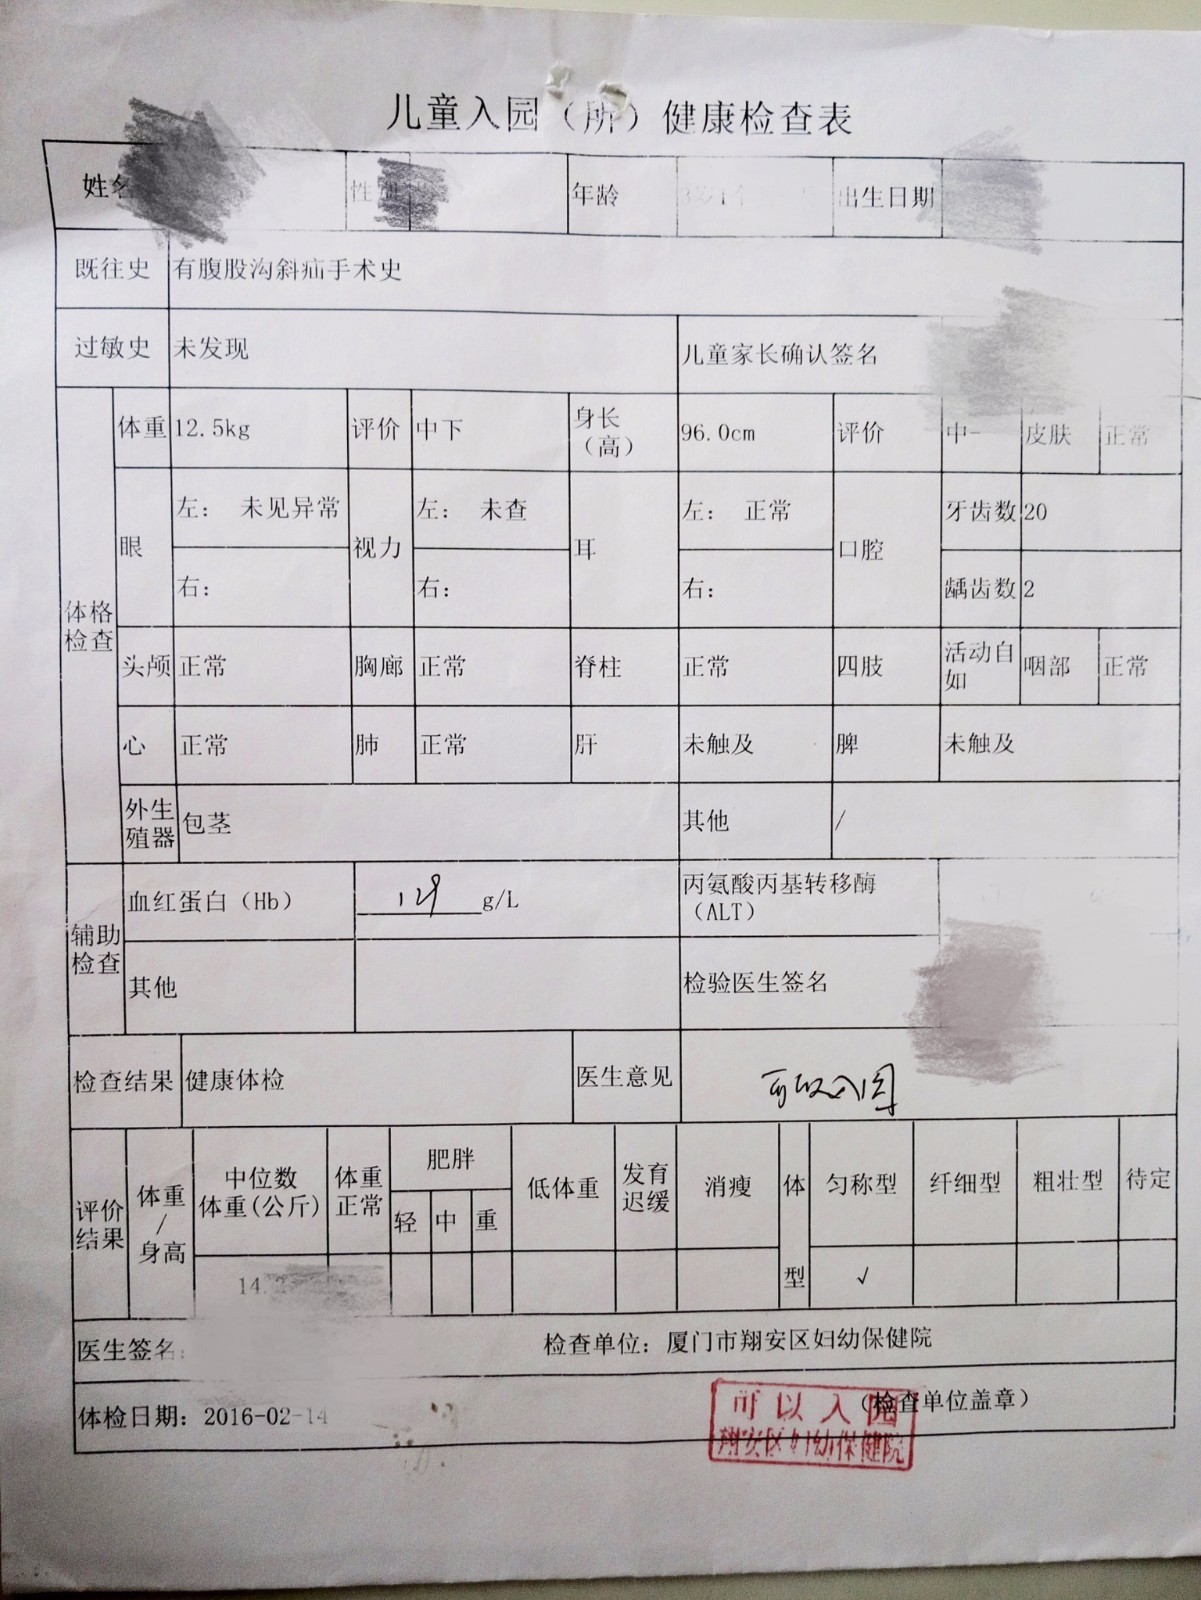 儿童入园（所）健康检查表
姓名 性别 年龄 出生日期
既往史 有腹股沟斜疝手术史
过敏史 未发现 儿童家长确认签名
体格检查
体重 12.5kg 评价 中下 身长（高） 96.0cm 评价 中- 皮肤 正常
眼 左： 未见异常 视力 左： 未查 耳 左： 正常 口腔 牙齿数 20
右： 右： 右： 龋齿数 2
头颅 正常 胸廊 正常 脊柱 正常 四肢 活动自如 咽部 正常
心 正常 肺 正常 肝 未触及 脾 未触及
外生殖器 包茎 其他 /
辅助检查
血红蛋白（Hb） 129 g/L 丙氨酸丙基转移酶（ALT）
其他 检验医生签名
检查结果 健康体检 医生意见 可以入园
评价结果 体重/身高 中位数体重(公斤) 体重正常 肥胖 低体重 发育迟缓 消瘦 体型 匀称型 纤细型 粗壮型 待定
轻 中 重
14. √
医生签名: 检查单位：厦门市翔安区妇幼保健院
体检日期：2016-02-14 （检查单位盖章）
可以入园
翔安区妇幼保健院